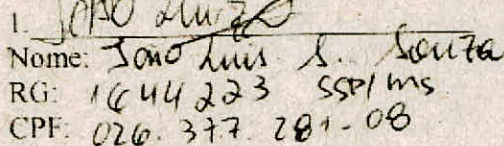 1. João Luiz
Nome: João Luis S. Souza
RG: 1644223 SSP/MS
CPF: 026.377.281-08